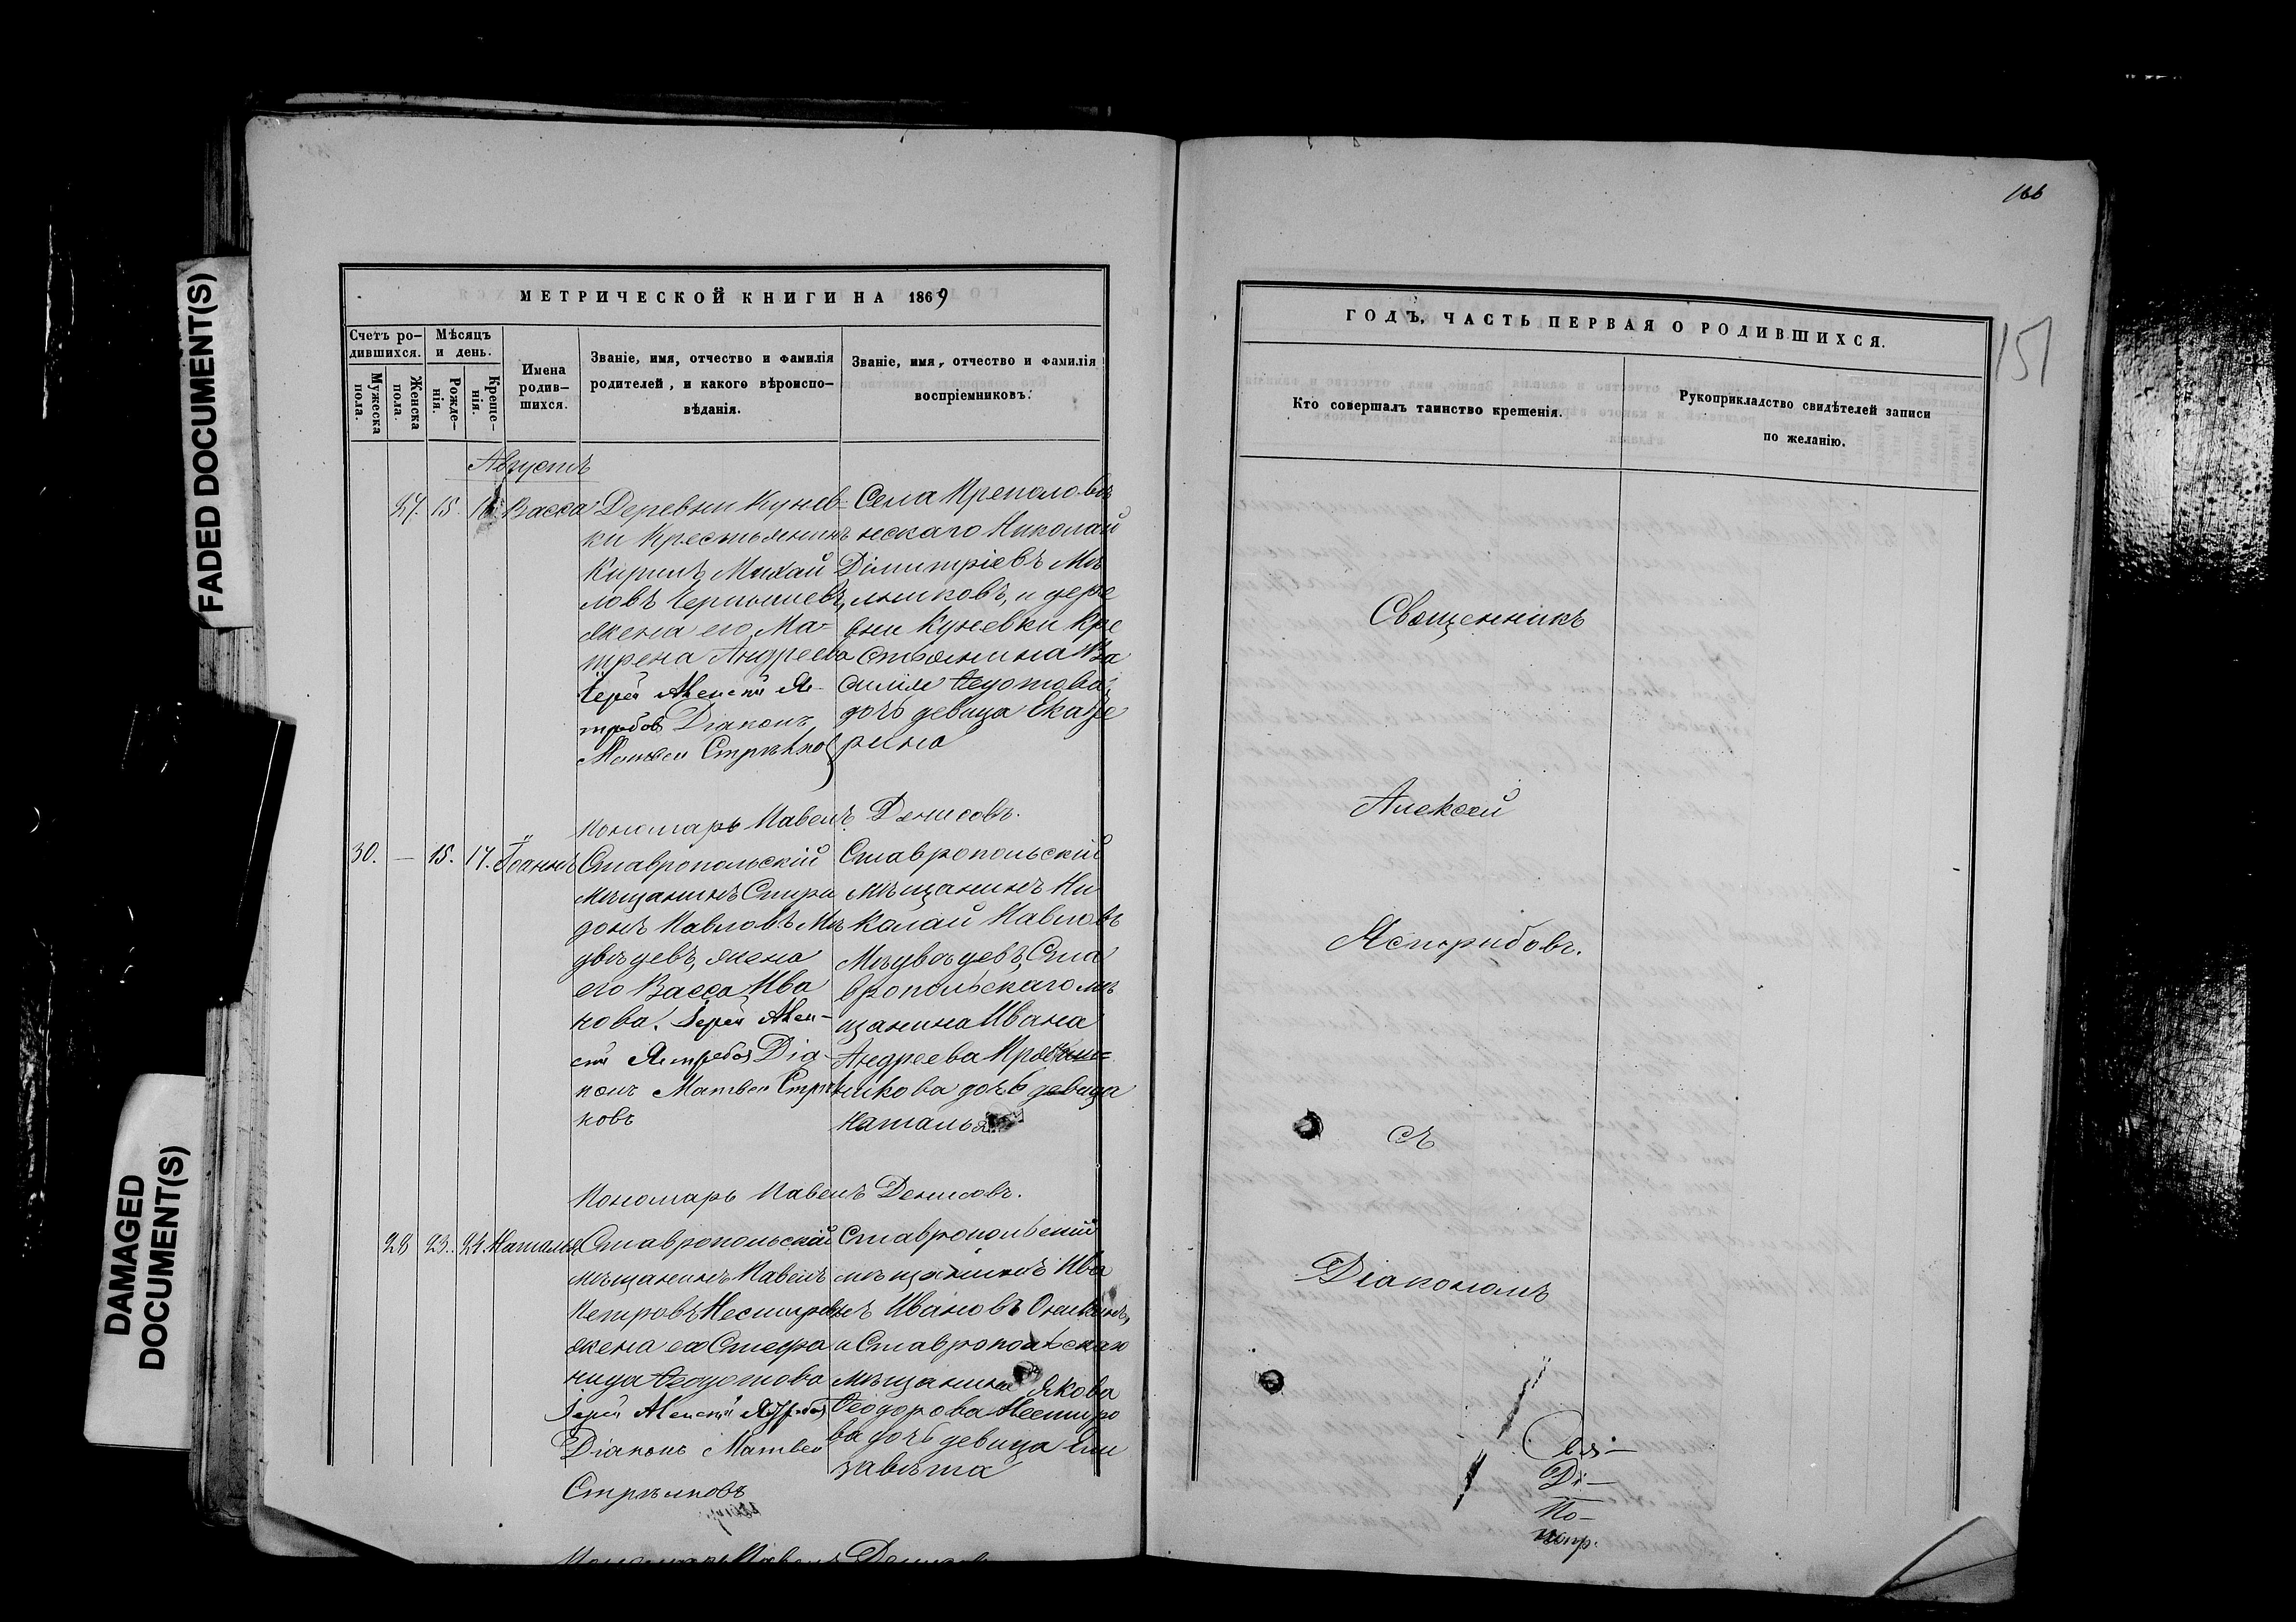 FADED DOCUMENT(S)
DAMAGED
DOCUMENT(S)
МЕТРИЧЕСКОЙ КНИГИ НА 1869
Счетъ ро-
дившихся.
Мужеска
пола.
Женска
пола.
Мѣсяцъ
и день.
Рожде-
нія.
Креще-
нія.
Имена
родив-
шихся.
Званіе, имя, отчество и фамилія
родителей, и какого вѣроиспо-
вѣданія.
Званіе, имя, отчество и фамилія
воспріемниковъ.
Августъ
27. 15. 16. Васса
Деревни Кунев-
ки Крестьянинъ
Кирилъ Михай
ловъ Чернышевъ,
жена его Ма-
трена Андреева
Іерей Алексѣй Яс-
требовъ Діаконъ
Матвей Стрѣлков
Села Преполовѣ
нескаго Николай
Димитріевъ Мѣ
льниковъ, и дере
вни Куневки Кре
стьянина Ва
силия Федотова
дочь девица Екате
рина
Пономарь Павелъ Денисовъ.
30. — 15. 17. Іоаннъ
Ставропольскій
мѣщанинъ Спири
донъ Павловъ Мѣ
двѣдевъ, жена
его Васса Ива
нова. Іерей Алек-
сѣй Ястребов Діа
конъ Матвей Стрѣл
ковъ
Ставропольскій
мѣщанинъ Ни
колай Павловъ
Мѣдвѣдевъ, Ста
вропольскаго мѣ
щанина Ивана
Андреева
никова дочь девица
Наталья
Пономарь Павелъ Денисовъ.
28 23. 24. Наталия
Ставропольскій
мѣщанинъ Павелъ
Петровъ Нестеровъ
жена его Стефа
нида Федотова
Іерей Алексѣй Ястребов
Діаконъ Матвей
Стрѣлковъ
Ставропольскій
мѣщанинъ Ива
нъ Ивановъ
и Ставропольскаго
мѣщанина Якова
Феодорова Нестеро
ва дочь девица Ели
завѣта
Пономарь Павелъ Денисовъ
166
151
ГОДЪ, ЧАСТЬ ПЕРВАЯ О РОДИВШИХСЯ.
Кто совершалъ таинство крещенія.
Рукоприкладство свидѣтелей записи
по желанію.
Священникъ
Алексѣй
Ястребовъ.
съ
Діакономъ
Свя-
Ді-
По-